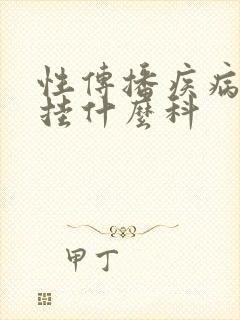 性傳播疾病
挂什麼科
甲丁